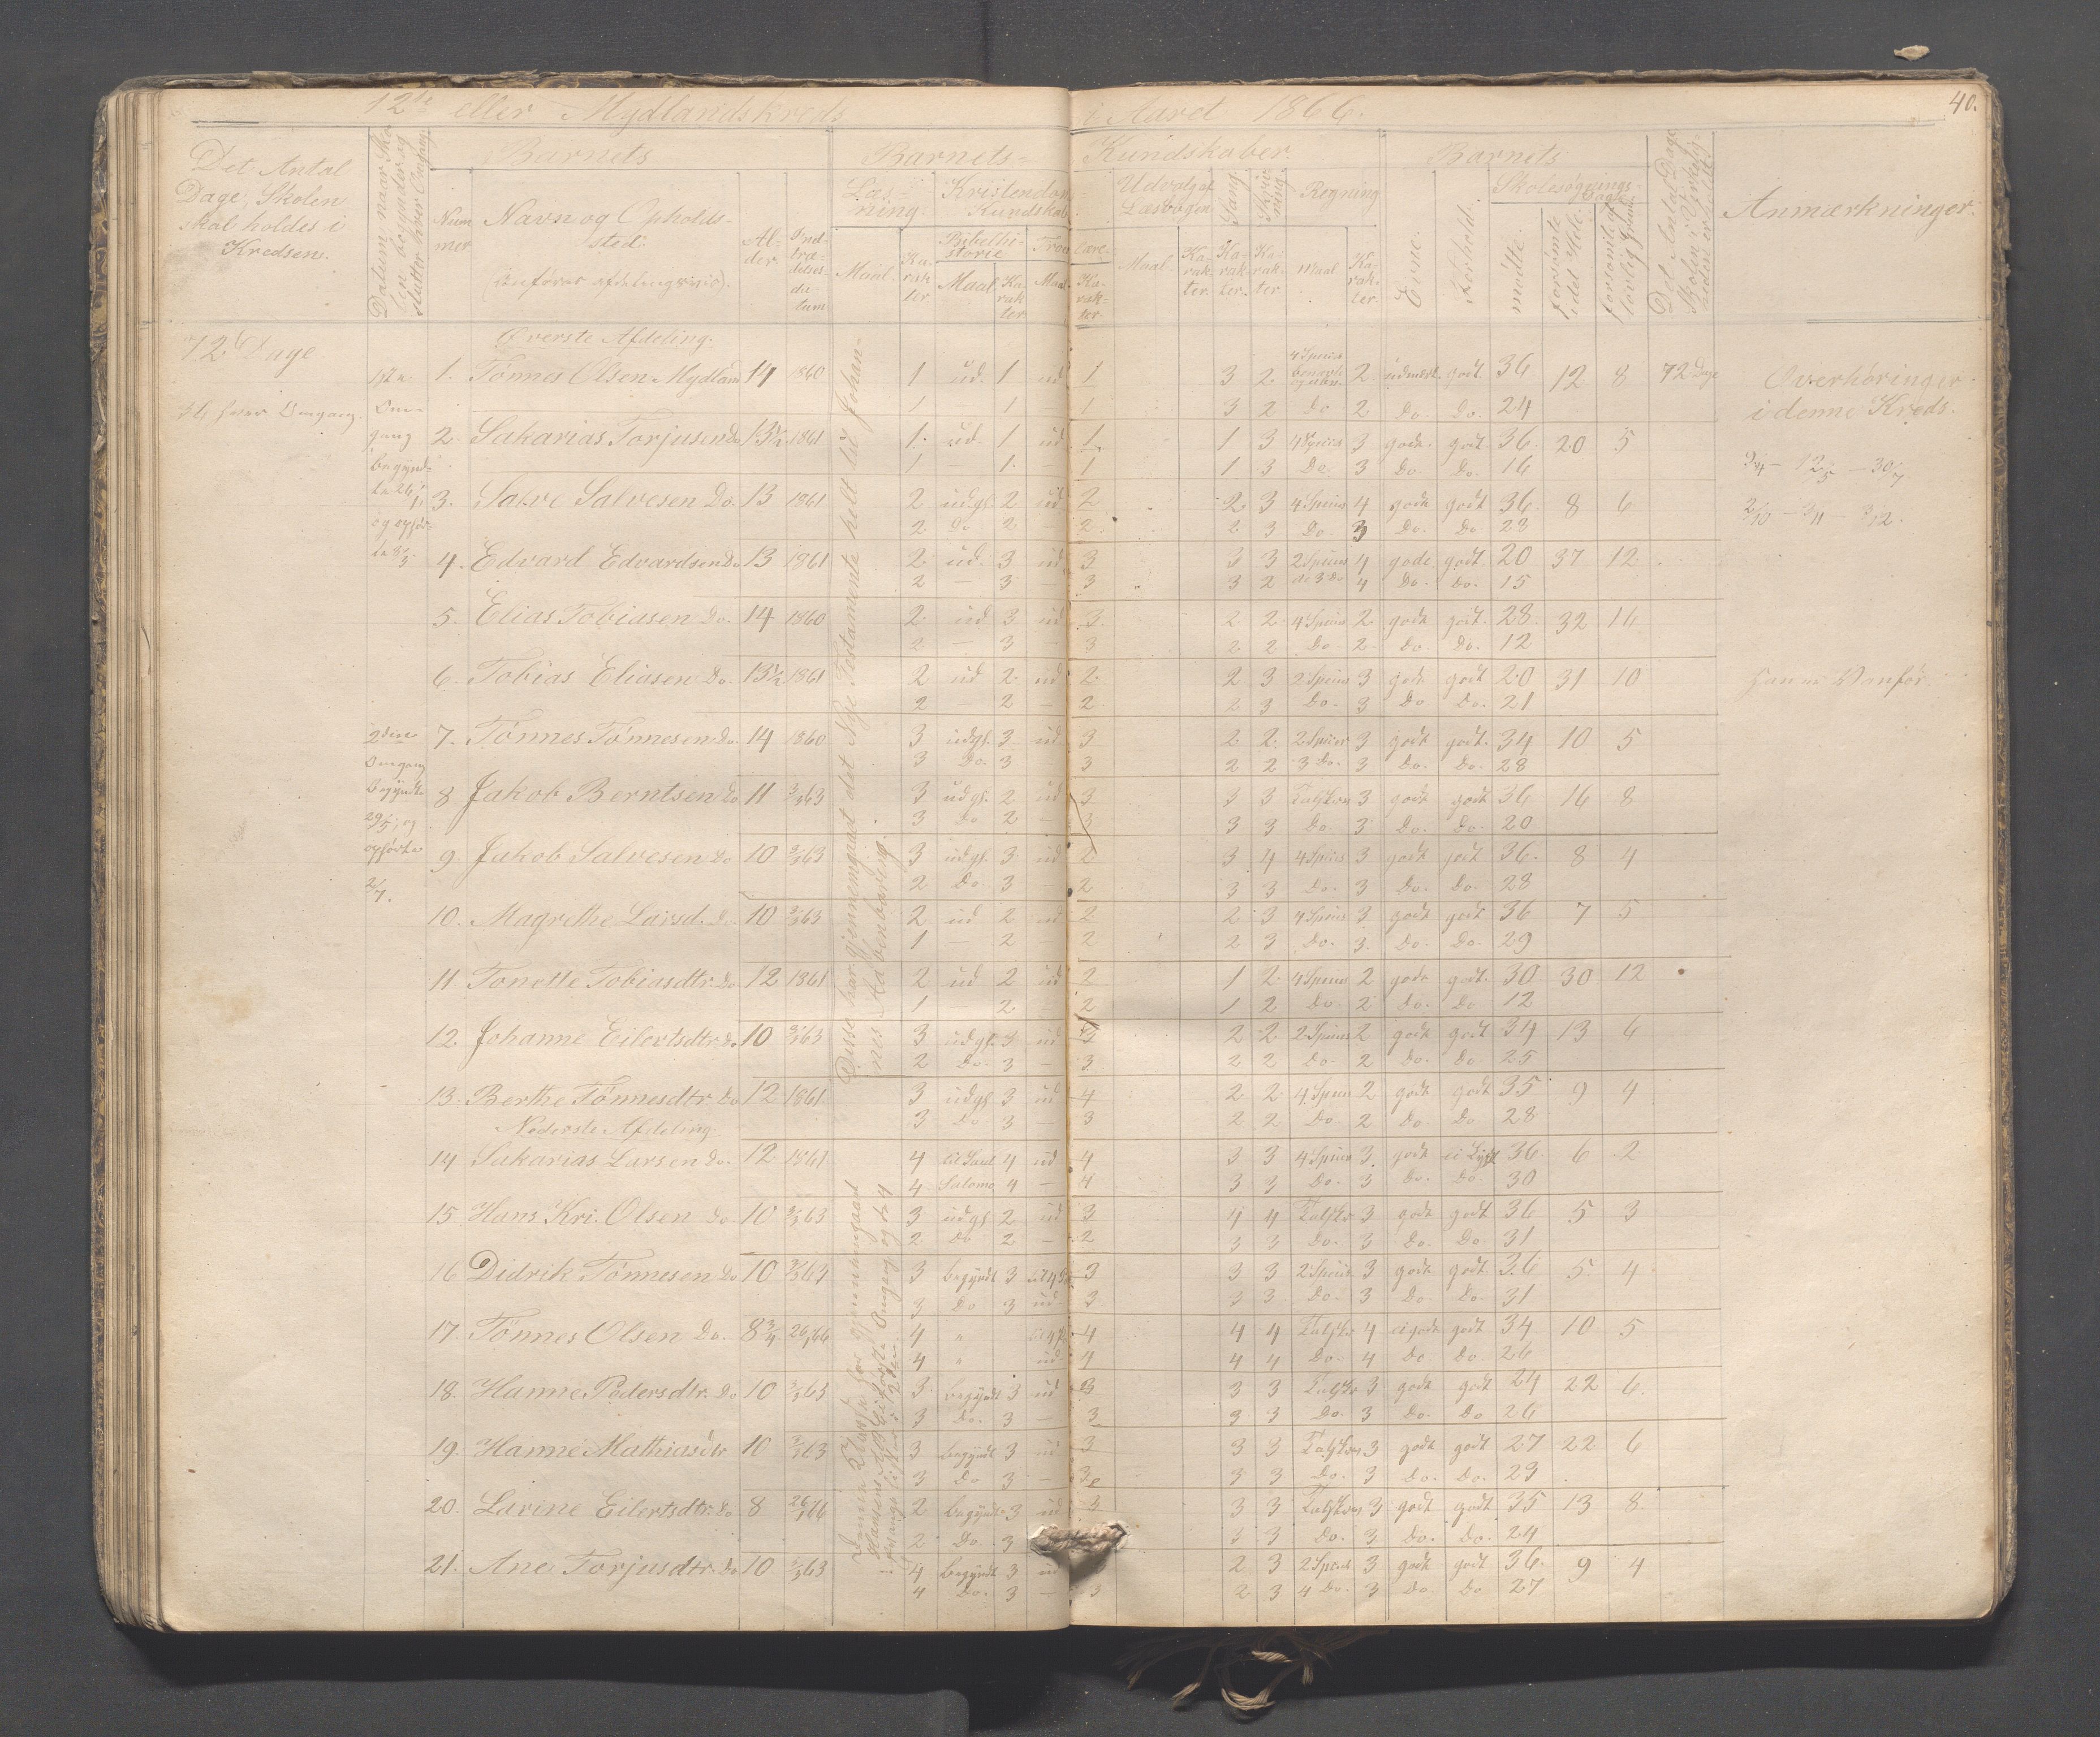 12te eller Mydlands kreds i Aaret 1866. 40.
Det Antal Dage, Skolen skal holdes i Kredsen.
Datum naar Skolen begynder og slutter hver Omgang
Barnets
Nummer
Navn og Opholdssted.
(anføres afdelingsvis).
Alder.
Indtrædelsesdatum
Barnets Kundskaber.
Læsning.
Maal. Karakter
Kristendoms Kundskab.
Bibelhistorie
Maal Karakter
Troeslære.
Maal Karakter
Udvalget Læsbogen
Maal. Karakter.
Sang. Karakter.
Skrivning. Karakter
Regning
Maal Karakter.
Barnets
Evne.
Forhold.
Skolesøgnings Dage
mødte.
forsømte i det Hele.
forsømte af lovlig Grund.
Det Antal Dage Skolen i Virkeligheden er holdt.
Anmærkninger.
72 Dage
36 hver Omgang.
1ste Omgang begyndte 26/1 og opførte 8/3.
2den Omgang Begyndte 29/5, og opførte 2/7.
Øverste Afdeling.
Disse har gjennemgaaet det Nye Testamente helt til Johannes Aabenbaring.
1. Tønnes Olsen Mydland 14 1860 1 ud. 1 ud 1 3 2 4 Species 2 udmærk. godt. 36 12 8 72 Dage
1 1 1 3 2 Do 2 Do. Do. 24
Overhøringer i denne Kreds.
2. Sakarias Torjusen Do 13½ 1861 1. ud. 1 ud 1 1 3 4 Species 3 godt. godt. 36. 20 5
1 — 1. — 1 1 3 Do. 3 Do Do. 16
3. Salve Salvesen Do. 13 1861 2 udgl. 2 ud. 2 2 3 4 Species 4 godt godt 36. 8 6
2 Do 2 — 2. 2 3 Do. 3 Do. Do. 28
4. Edvard Edvardsen Do 13 1861 2. ud. 3 ud 3 3 3 2 Species 4 godt godt. 20 37 12
2 — 3 — 3 3 2 4 Do. Do. 15
5. Elias Tobiasen Do. 14 1860 2. ud 3 ud 3. 2 2 4 Species 2 godt godt. 28. 32 14
2 — 3 — 3 2 2 Do 2 Do. Do. 12
6. Tobias Eliasen Do. 13½ 1861 2 ud 2 ud 2. 2 3 2 Species 3 godt godt 20 31 10
2 — 2 — 2 2 3 Do. 3 Do Do. 21
Han er Vanfør.
7. Tønnes Tønnesen Do. 14 1860 3 udgl. 3 ud. 3 2 2 2 Species 3 godt godt. 34 10 5
3 Do. 3 — 3 2 2 3 Do. 3 Do. Do. 28
8 Jakob Berntsen Do 11 3/3 63 3 udgl. 2 ud 3 3 3 3 godt godt 36 16 8
3 Do 2 — 3 3 3 Do. 3 Do. Do. 20
9. Jakob Salvesen Do 10 3/3 63 3 udgl. 3 ud 2 3 4 4 Species 3 godt godt 36. 8 4
2 Do 3 — 2 3 3 Do. 3 Do. Do. 28
10. Magrethe Larsd. Do. 10 3/3 63 2 ud 2 ud 2 2 3 4 Species 3 godt godt 36 7 5
1 — 2 — 2 2 3 Do. 3. Do. Do. 29
11 Tonette Tobiasdtr. Do 12 1861 2 ud 2 ud 2 1 2 4 Species 2 godt godt. 30 30 12
1 — 2 — 2 1 2 Do 2 Do. Do 12
12. Johanne Eilertsdtr. Do 10 3/3 63 3 udgl. 3 ud 3 2 2 2 Species 2 godt godt 34 13 6
2 Do. 3 — 3 2 2 Do. 2 Do. Do 25
13. Berthe Tønnesdtr. Do 12 1861 3 udgl 3 ud 4 2 2 4 Species 2 godt godt 35 9 4
3 Do 3 — 3 2 2 Do. 2 Do. Do 28
Nederste Afdeling.
14 Sakarias Larsen Do. 12 1861 4 til Saul 4 ud 4 3 3 4 Species 3. godt 36 6 2
4 Salomo 4 — 4 3 3 Do. 3 Do. Do. 30
15 Hans Kri. Olsen Do 10 3/3 63 3 udgl 2 ud 3 4 4 3 godt godt 36 5 3
2 Do 2 — 2 3 3 Do. 3 Do. Do. 31
16 Didrik Tønnesen Do 10 3/3 63 3 begyndt 3 3 3 3 2 Species 3 godt godt. 36 5 4
3 Do 3 ud 3 3 3 Do. 3 Do. Do. 31
17. Tønnes Olsen Do. 8¾ 26/1 66 4 " 4 4 4 4 ei godt godt 34 10 5
4 " ud. 4 4 4 Do. 4 Do. Do. 26
18. Hanne Pedersdtr. Do 10 3/3 63 3 begyndt 3 ud 3 3 3 3 godt godt 24 22 6.
3 Do. 3 — 3 3 3 Do. 3 Do. Do 26
19. Hanne Mathiasdtr 10 3/3 63 3 begyndt 3 ud 3 3 3 3 godt godt 27 22 6
3 Do 3 — 3 3 3 Do. 3 Do. Do. 23
20. Larine Eilertsdtr. Do 8 26/1 66 2 begyndt 3 ud 3 3 3 3 godt godt 35 13 8
2 Do. 3 3 3 Do. 3 Do. Do. 24
21. Ane Torjusdtr. Do 10 3/3 63 4 Begyndt 3 ud 2 3 2 Species 3 godt godt 36. 9 4
4 Do. 3 — 3 2 3 4 Do. 3 Do Do 27